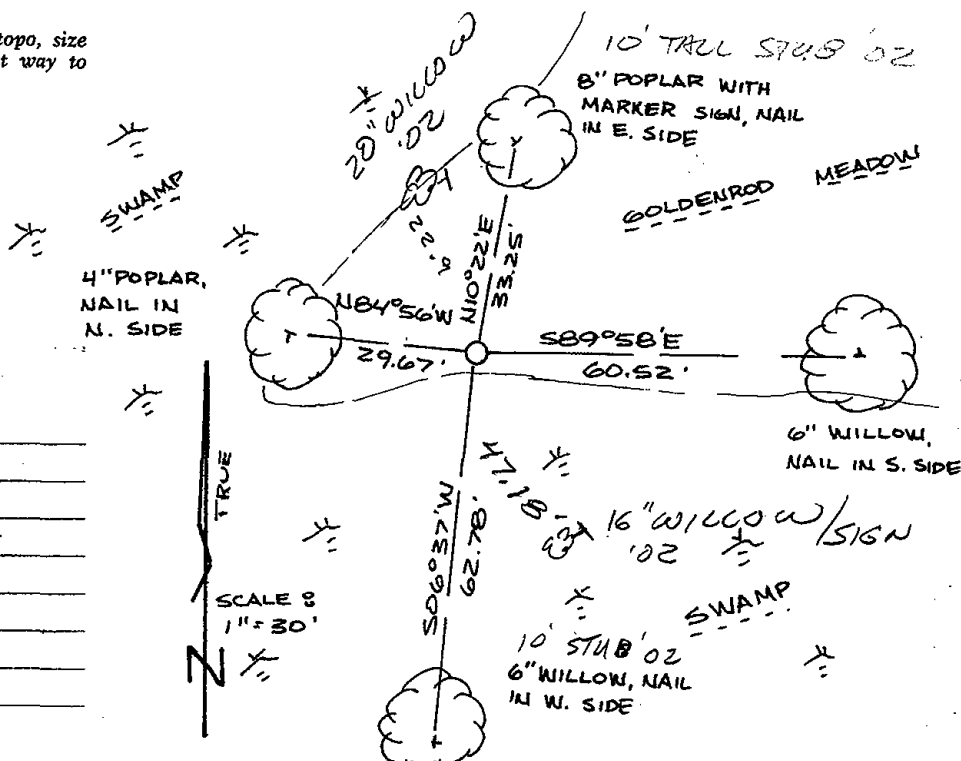 topo, size
t way to
10' TALL STUB '02
8" POPLAR WITH
MARKER SIGN, NAIL
IN E. SIDE
20" WILLOW
'02
SWAMP
GOLDENROD MEADOW
22.
4" POPLAR,
NAIL IN
N. SIDE
N10°22'E
33.25'
N84°56'W
29.67'
S89°58'E
60.52'
6" WILLOW,
NAIL IN S. SIDE
TRUE
47.18'
16" WILLOW/SIGN
'02
S06°37'W
62.78'
SCALE:
1"=30'
N
SWAMP
10' STUB '02
6" WILLOW, NAIL
IN W. SIDE